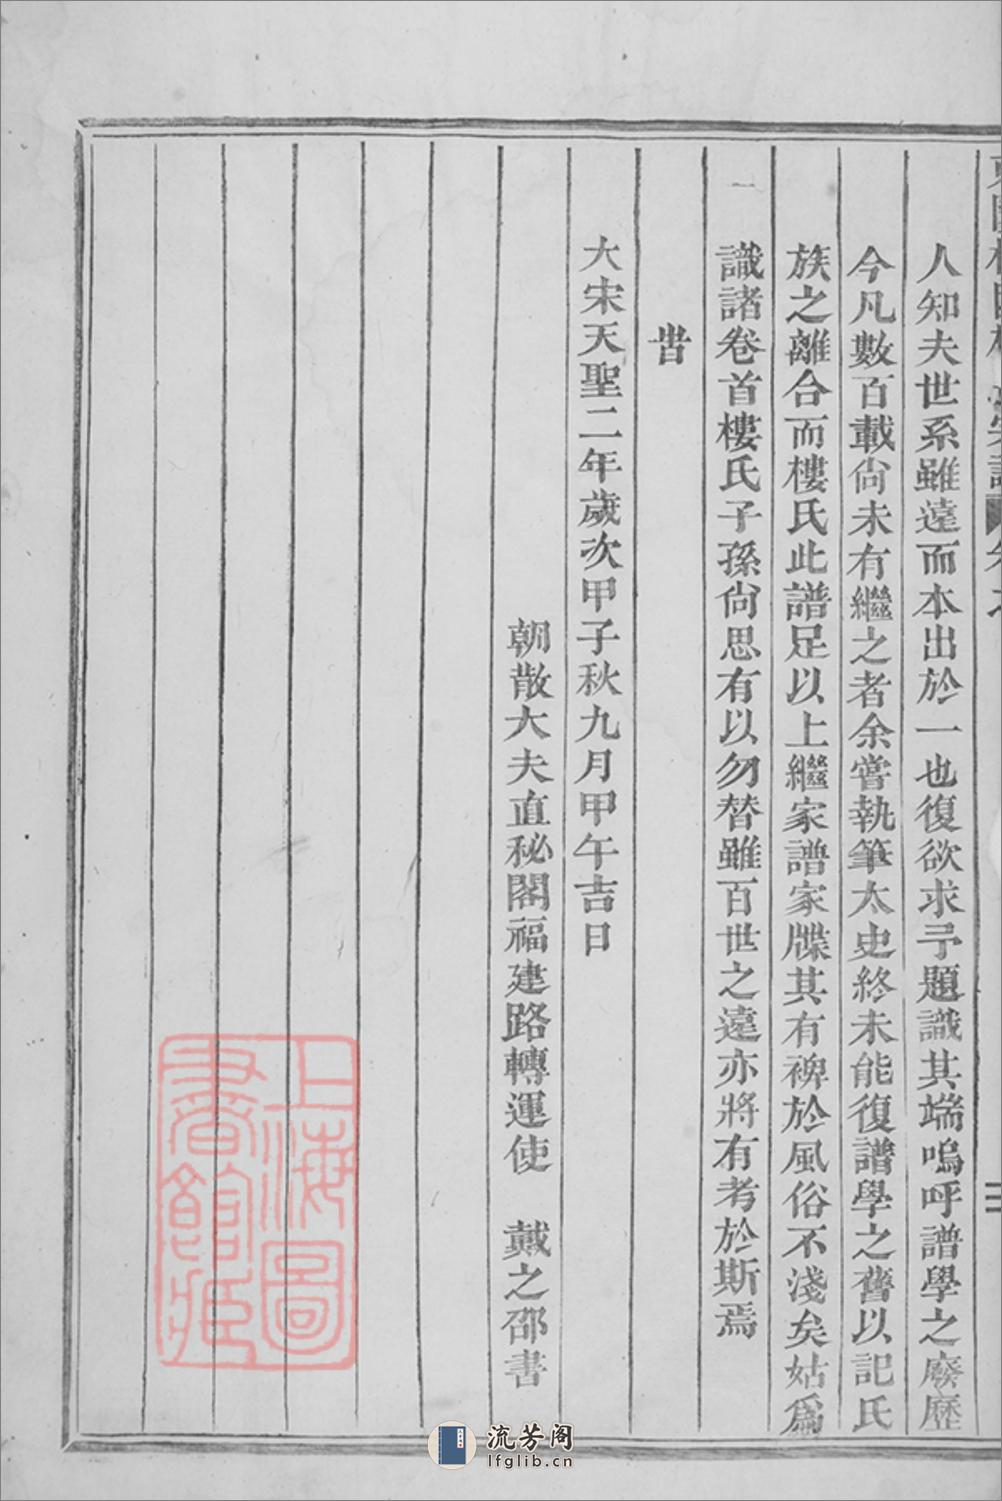 人知夫世系雖遠而本出於一也復欲求予題識其端嗚呼譜學之廢歷
今凡數百載尙未有繼之者余嘗執筆太史終未能復譜學之舊以記氏
族之離合而樓氏此譜足以上繼家譜家牒其有裨於風俗不淺矣姑爲
識諸卷首樓氏子孫尙思有以勿替雖百世之遠亦將有考於斯焉
旹
大宋天聖二年歲次甲子秋九月甲午吉日
朝散大夫直秘閣福建路轉運使 戴之邵書
上海圖
書館藏
流芳阁
lfglib.cn